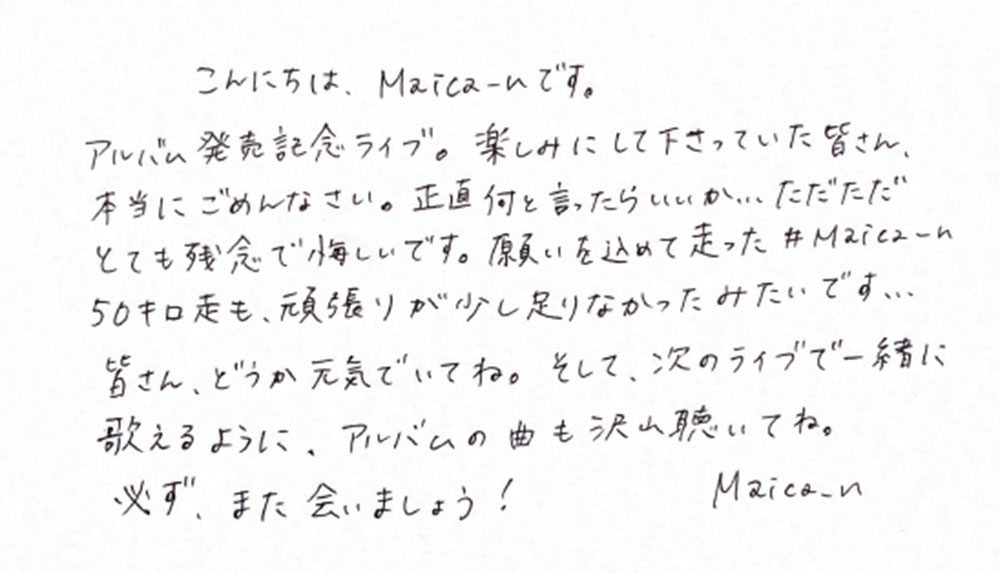 こんにちは、Maica_nです。
アルバム発売記念ライブ。楽しみにして下さっていた皆さん、
本当にごめんなさい。正直何と言ったらいいか…ただただ
とても残念で悔しいです。願いを込めて走った#Maica_n
50キロ走も、頑張りが少し足りなかったみたいです…
皆さん、どうか元気でいてね。そして、次のライブで一緒に
歌えるように、アルバムの曲も沢山聴いてね。
必ず、また会いましょう!
Maica_n